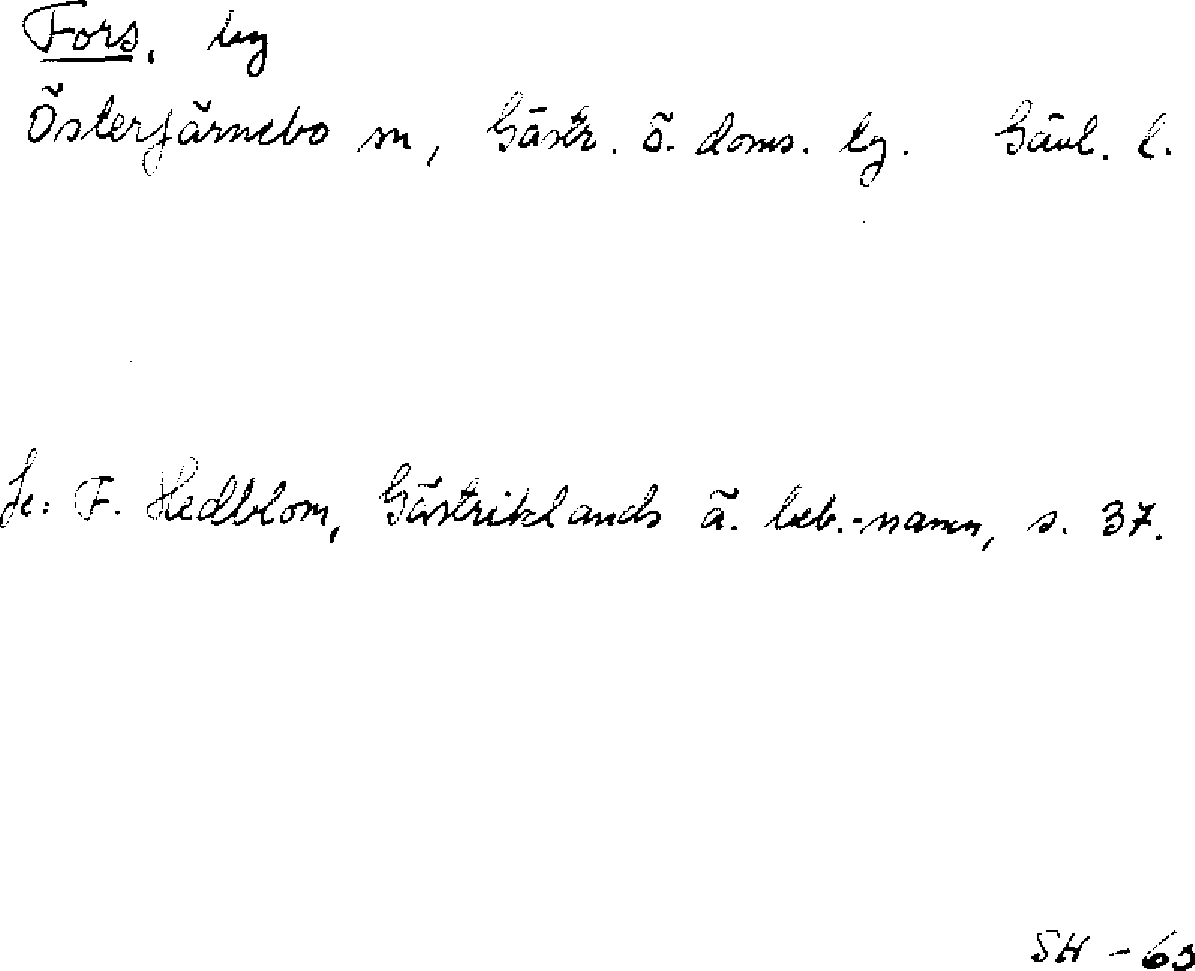 Fors, by
Österfärnebo sn, Gästr. ö. doms. lg. Gävl. l.
Je: F. Hedblom, Gästriklands ä. beb.-namn, s. 37.
SH - 63